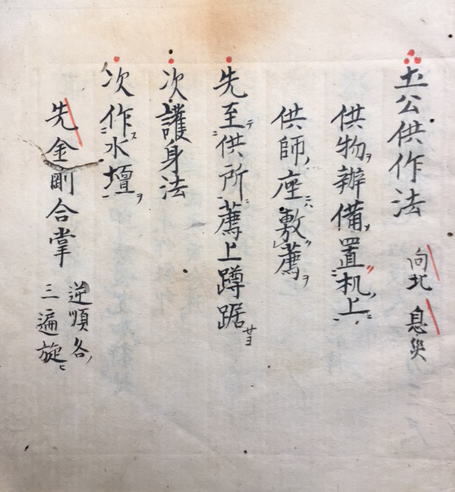 土公供作法 向北 息災
供物ヲ辨備置机上ニ
供師座ニハ敷薦ヲ
先至テ供所ニ薦上蹲踞
次護身法
次作ス水壇ヲ
先金剛合掌 逆順各
三遍旋